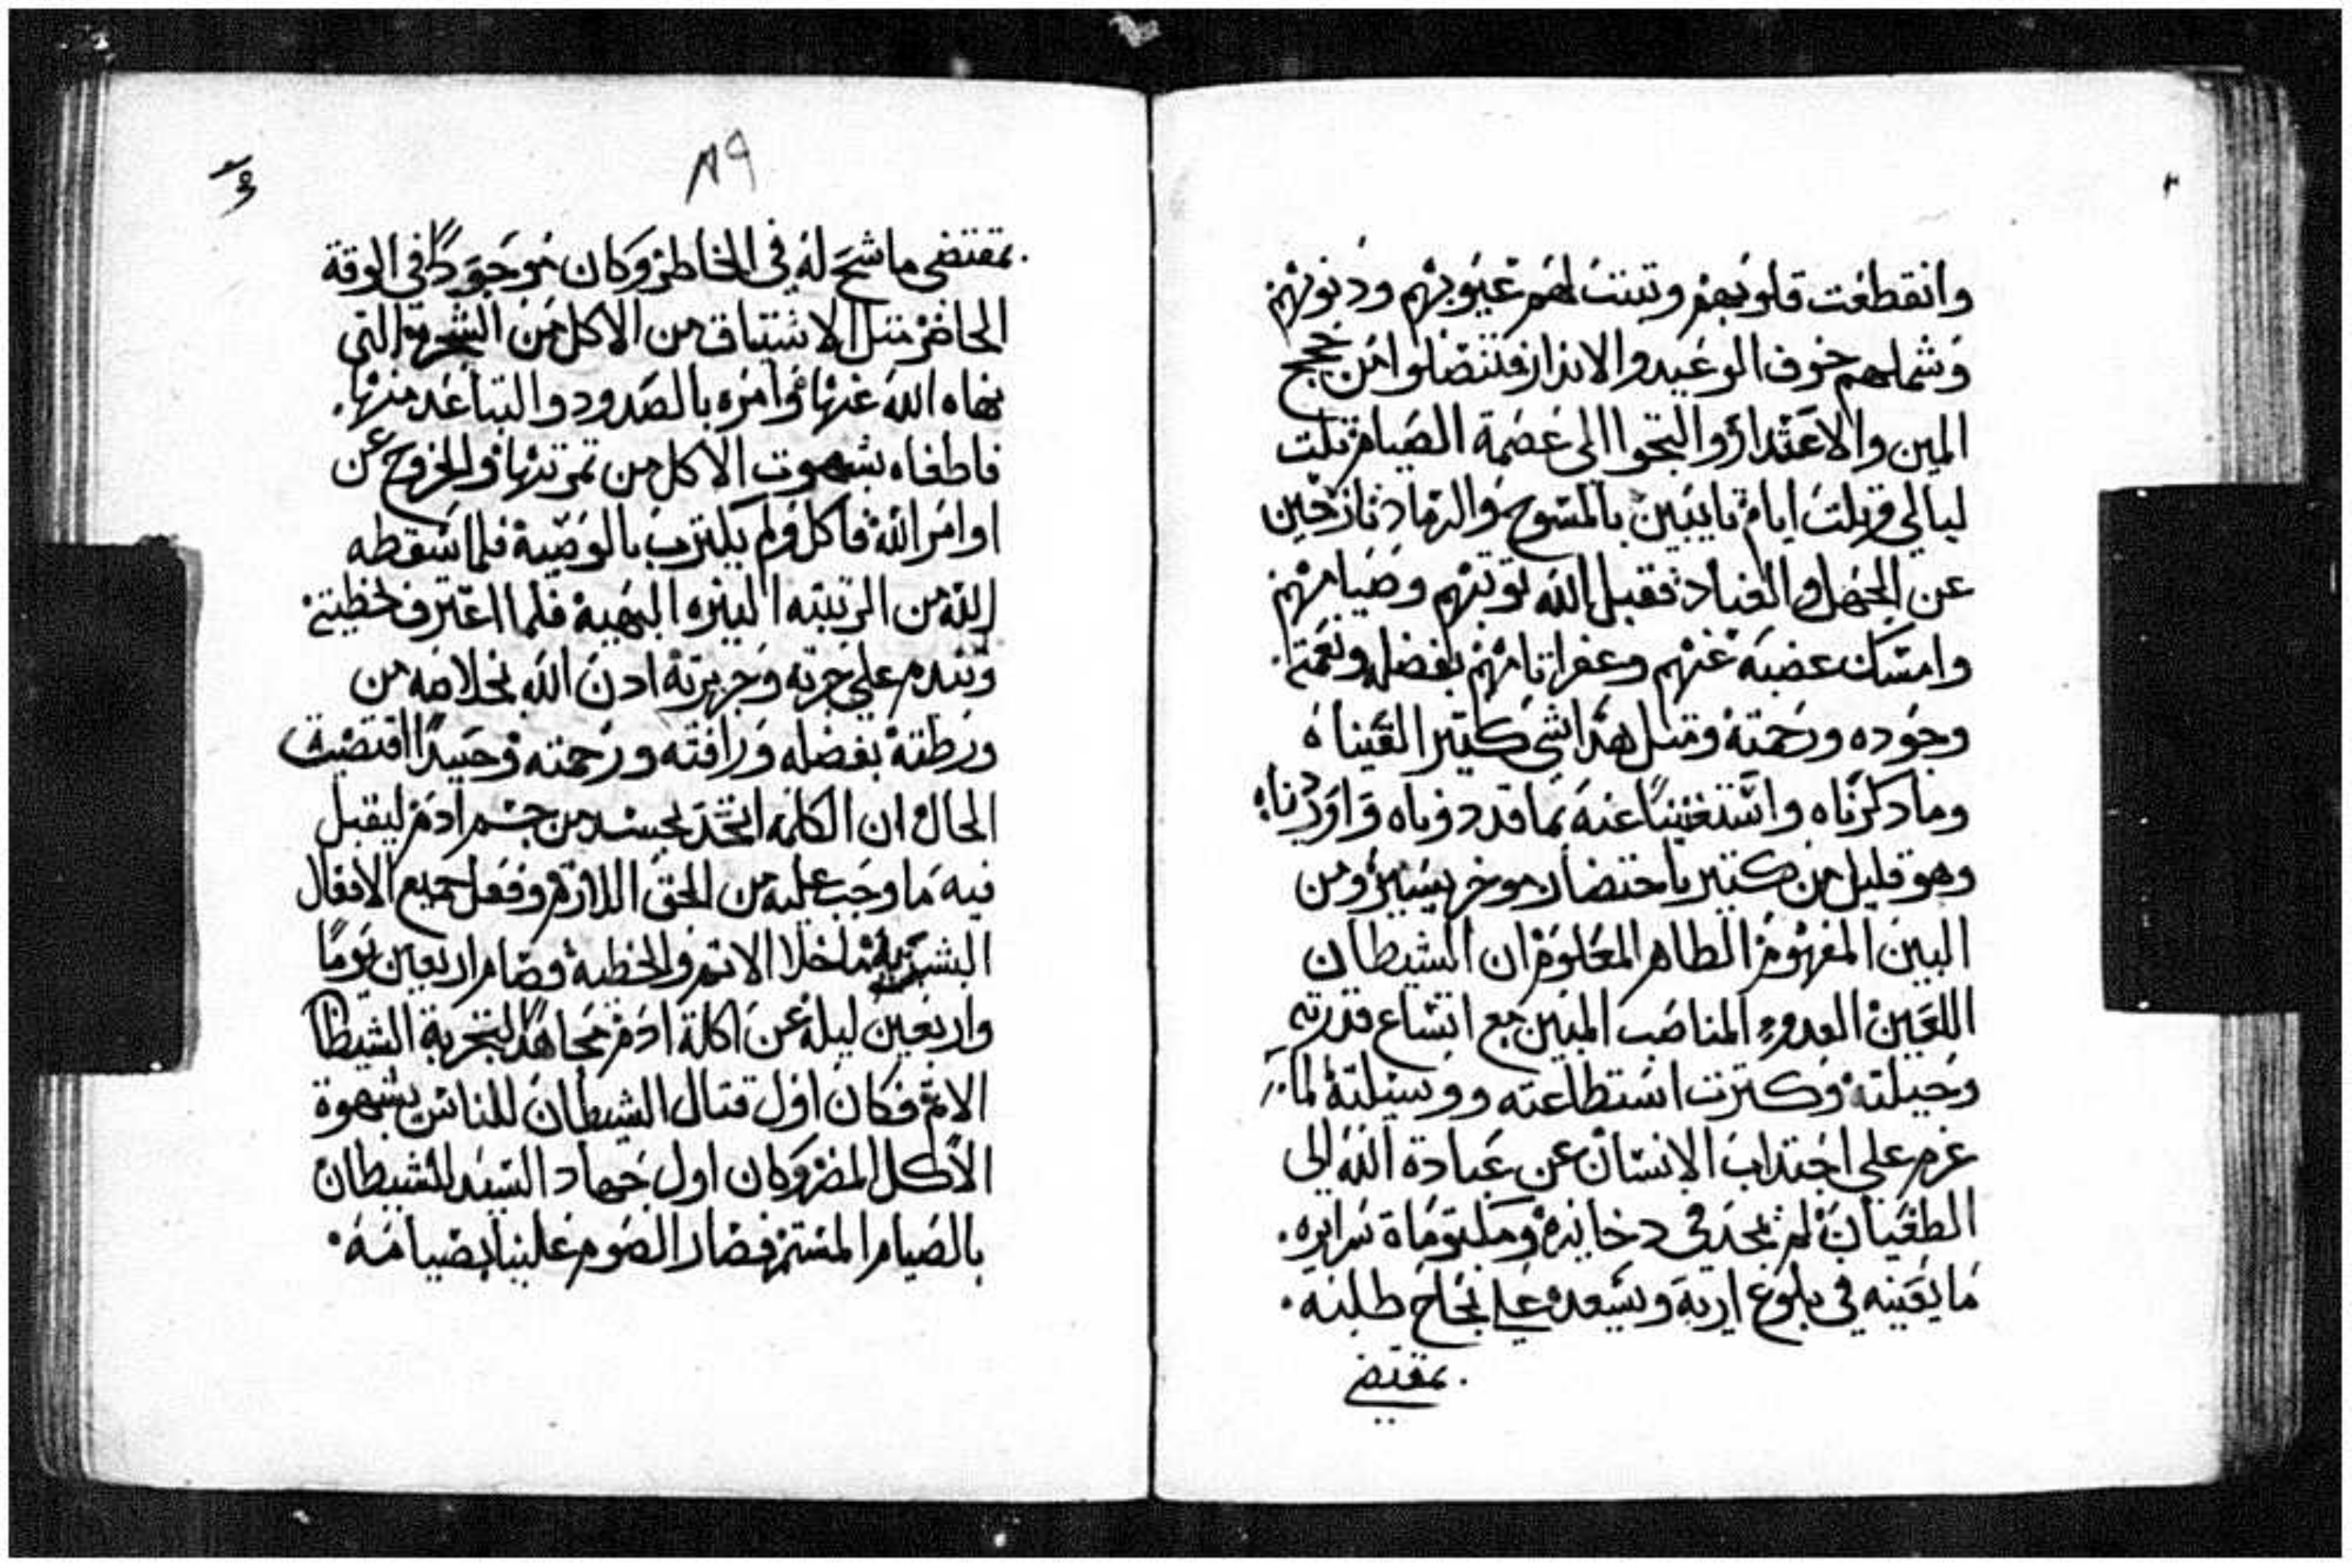 وانقطعت قلوبهم وتبتت لهم عيوبهم ودنوبهم
وشملهم خوف الوعيد والاندار فتنصلوا من حجج
المين والاعتدار والتجوا الى عصمة الصيام تلت
ليالي وتلت ايام تايبين بالمسوح والرماد نازحين
عن الجهل والفساد فقبل الله توبتهم وصيامهم
وامسك غضبه عنهم وغفر اتامهم بفضله ونعمته.
وجوده ورحمته ومتل هدا شي كتير القيناه
وما دكرناه واستغنينا عنه بما قد دوناه واوردناه
وهو قليل من كتير باختصار موخر يسير ومن
البين المفهوم الظاهر المعلوم ان الشيطان
اللعين العدو المناصب المبين مع اتساع قدرته
وحيلته وكترت استطاعته ووسيلته لما
عزم على اجتداب الانسان عن عبادة الله الى
الطغيان لم يجد في دخايره ومكتومات سرايره.
ما يعينه في بلوغ اربه ويسعده على نجاح طلبه.
بمقتضي
٨٩
بمقتضى ما شح له في الخاطر وكان موجودًا في الوقة
الحاضر متل الاشتياق من الاكل من الشجرة التي
نهاه الله عنها وامره بالصدود والتباعد منها.
فاطغاه بشهوت الاكل من تمرتها والخروج عن
اوامر الله فاكل ولم يلتزم بالوصية فلما اسقطه
الله من الرتبته النيره البهية فلما اعترف بخطيته
وتندم على جرته وجريرته ادن الله بخلاصه من
ورطته بفضله ورافته ورحمته وحييدًا اقتضت
الحال ان الكلمة اتخد بجسد من جسم ادم ليقبل
فيه ما وجب عليه من الحق اللازم وفعل جميع الافعال
البشرية ما خلا الاتم والخطية وصام اربعين يومًا
واربعين ليلة عن اكلة ادم مجاهدًا لتجربة الشيطا
الاتم فكان اول قتال الشيطان للناس بشهوة
الاكل المضر وكان اول جهاد السيد للشيطان
بالصيام المستمر فصار الصوم علينا بصيامه.